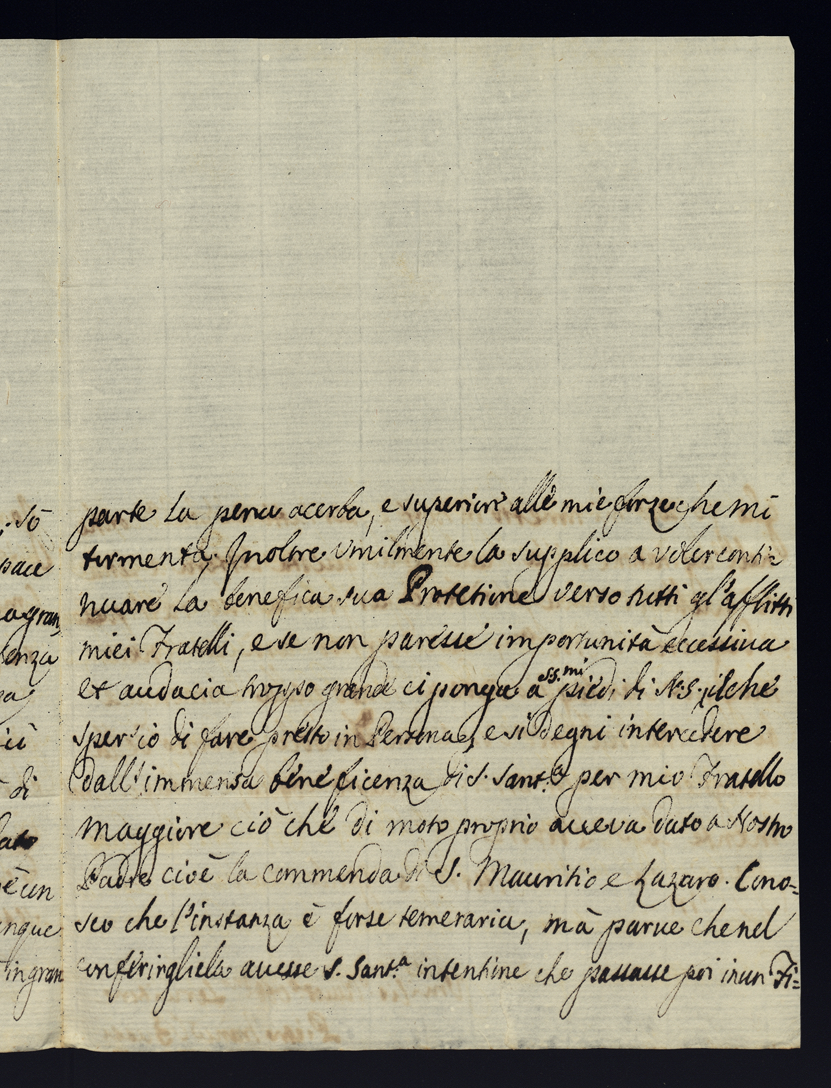 parte la pena acerba, e superiore alle mie forze che mi
tormenta. Inoltre umilmente la supplico a voler conti-
nuare la benefica sua Protetione verso tutti gl'afflitti
miei Fratelli, e se non paresse importunità eccessiva
et audacia troppo grande ci ponga a ss.mi piedi di N.S. ilche
spero io di fare presto in Persona, e si degni intercedere
dall'immensa beneficenza di S. Sant.à per mio Fratello
maggiore ciò che di moto proprio aveva dato a Nostro
Padre cioè la commenda di S. Mauritio e Lazaro. Cono=
sco che l'instanza è forse temeraria, mà parve che nel
conferirgliela avesse S. Sant.a intentione che passasse poi in un Fi=
sò
pace
agran
enza
di
lato
è un
nque
in gran